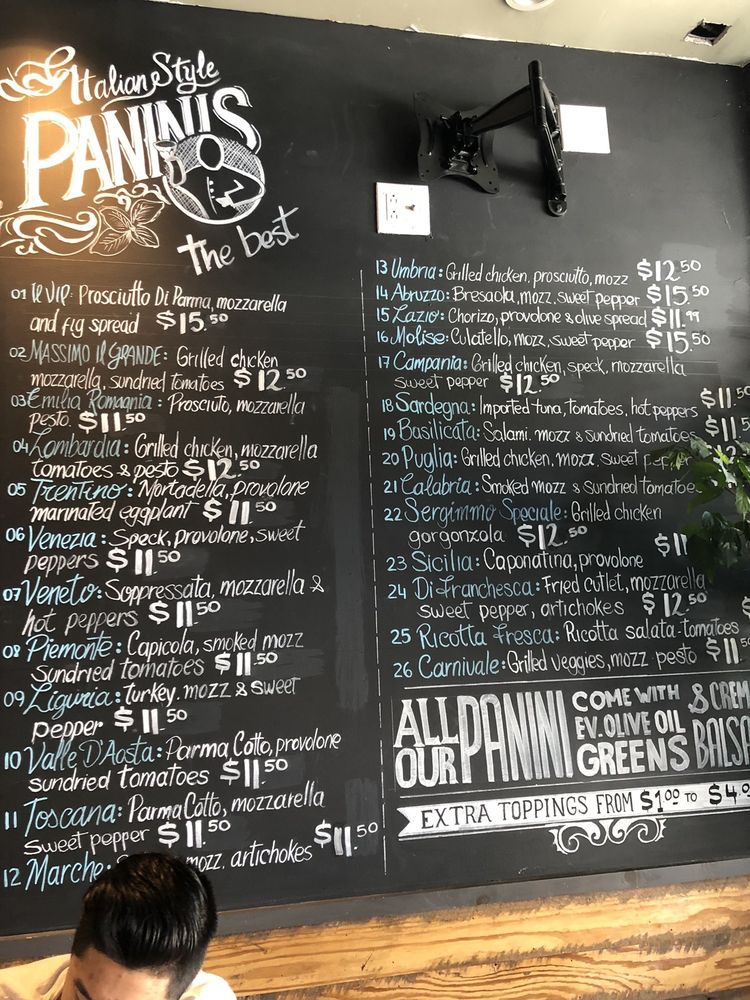 Italian Style
PANINIS
the best
01 Il VIP: Prosciutto Di Parma, mozzarella
and fig spread $15.50
02 MASSIMO Il GRANDE: Grilled chicken
mozzarella, sundried tomatoes $12.50
03 Emilia Romagnia: Prosciuto, mozzarella
pesto. $11.50
04 Lombardia: Grilled chicken, mozzarella
tomatoes & pesto $12.50
05 Trentino: Mortadella, provolone
marinated eggplant $11.50
06 Venezia: Speck, provolone, sweet
peppers $11.50
07 Veneto: Soppressata, mozzarella &
hot peppers $11.50
08 Piemonte: Capicola, smoked mozz
sundried tomatoes $11.50
09 Liguria: turkey. mozz & sweet
pepper $11.50
10 Valle D'Aosta: Parma Cotto, provolone
sundried tomatoes $11.50
11 Toscana: Parma Cotto, mozzarella
sweet pepper $11.50
12 Marche: mozz. artichokes $11.50
13 Umbria: Grilled chicken, prosciutto, mozz $12.50
14 Abruzzo: Bresaola, mozz, sweet pepper $15.50
15 Lazio: Chorizo, provolone & olive spread $11.99
16 Molise: Culatello, mozz, sweet pepper $15.50
17 Campania: Grilled chicken, speck, mozzarella
sweet pepper $12.50
18 Sardegna: Imported tuna, tomatoes, hot peppers $11.50
19 Basilicata: Salami. mozz & sundried tomatoes $11.5
20 Puglia: Grilled chicken, mozz, sweet
21 Calabria: Smoked mozz & sundried tomatoe
22 Sergimmo Speciale: Grilled chicken
gorgonzola $12.50
23 Sicilia: Caponatina, provolone $11
24 Di Franchesca: Fried cutlet, mozzarella
sweet pepper, artichokes $12.50
25 Ricotta Fresca: Ricotta salata-tomatoes
26 Carnivale: Grilled veggies, mozz pesto $11.50
ALL OUR PANINI COME WITH
EV. OLIVE OIL
GREENS & CREM
BALSA
EXTRA TOPPINGS FROM $1.00 TO $4.0